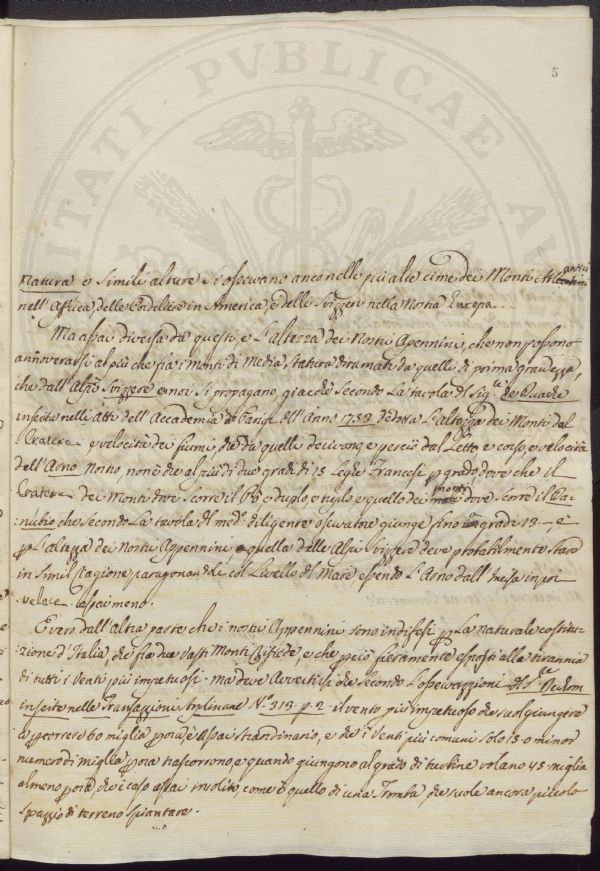 5
UTILITATI PVBLICAE
natura e simili alture si osservano anco nelle più alte cime dei Monti Atlantici
nell'Affrica, delle Cordeliere in America, e delle Svizzere nella Nostra Europa...
Ma assai diversa da questi, e L'altezza dei Nostri Apennini, che non possono
annoverarsi al più che fra i monti di Media statura diramati da quelli di prima grandezza,
che dall'Alpi Svizzere a noi si propagano, giacchè secondo La tavola del Sig.re de Buache
inserita nelli Atti dell'Accademia di Parigi dell'Anno 1752 dedotta L'altezza dei Monti dal
Cratere e velocità dei fiumi che da quelle derivano e perciò dal Letto e corso, e velocità
dell'Arno Nostro, non è che al più di due gradi di 15 Leghe francesi p grado dove che il
Cratere dei Monti dove scorre il Pò è duplo, e triplo e quello dei monti dove scorre il Da-
nubio che secondo La tavola del med.o diligente osservatore giunge fino a gradi 13 -, e
p L'altezza dei Nostri Appennini a quella delle Alpi Svizzere deve probabilmente stare
in simil ragione paragonandole col Livello del Mare essendo L'Arno dall'Incisa in poi
veloce assai meno.
È vero dall'altra parte che i nostri Appennini sono indifesi p La naturale costitu-
zione d'Italia, che fra due vasti Monti risiede, e che perciò fieramente esposti alla tirannia
di tutti i venti più impetuosi. ma deve Avvertirsi che secondo L'osservazioni del S.re
inserite nelle Transazzioni Anglicane N.o 313. p. 2. il vento più impetuoso che suol giungere
a percorrere 60 miglia p ora è assai straordinario, e che i Venti più comuni solo 15. o minor
numero di miglia p ora trascorrono, e quando giungono al grado di turbine volano 45. miglia
almeno p ora, che i caso assai insolito, come è quello di una Tromba che suole ancora piccolo
spazzio di terreno spiantare.